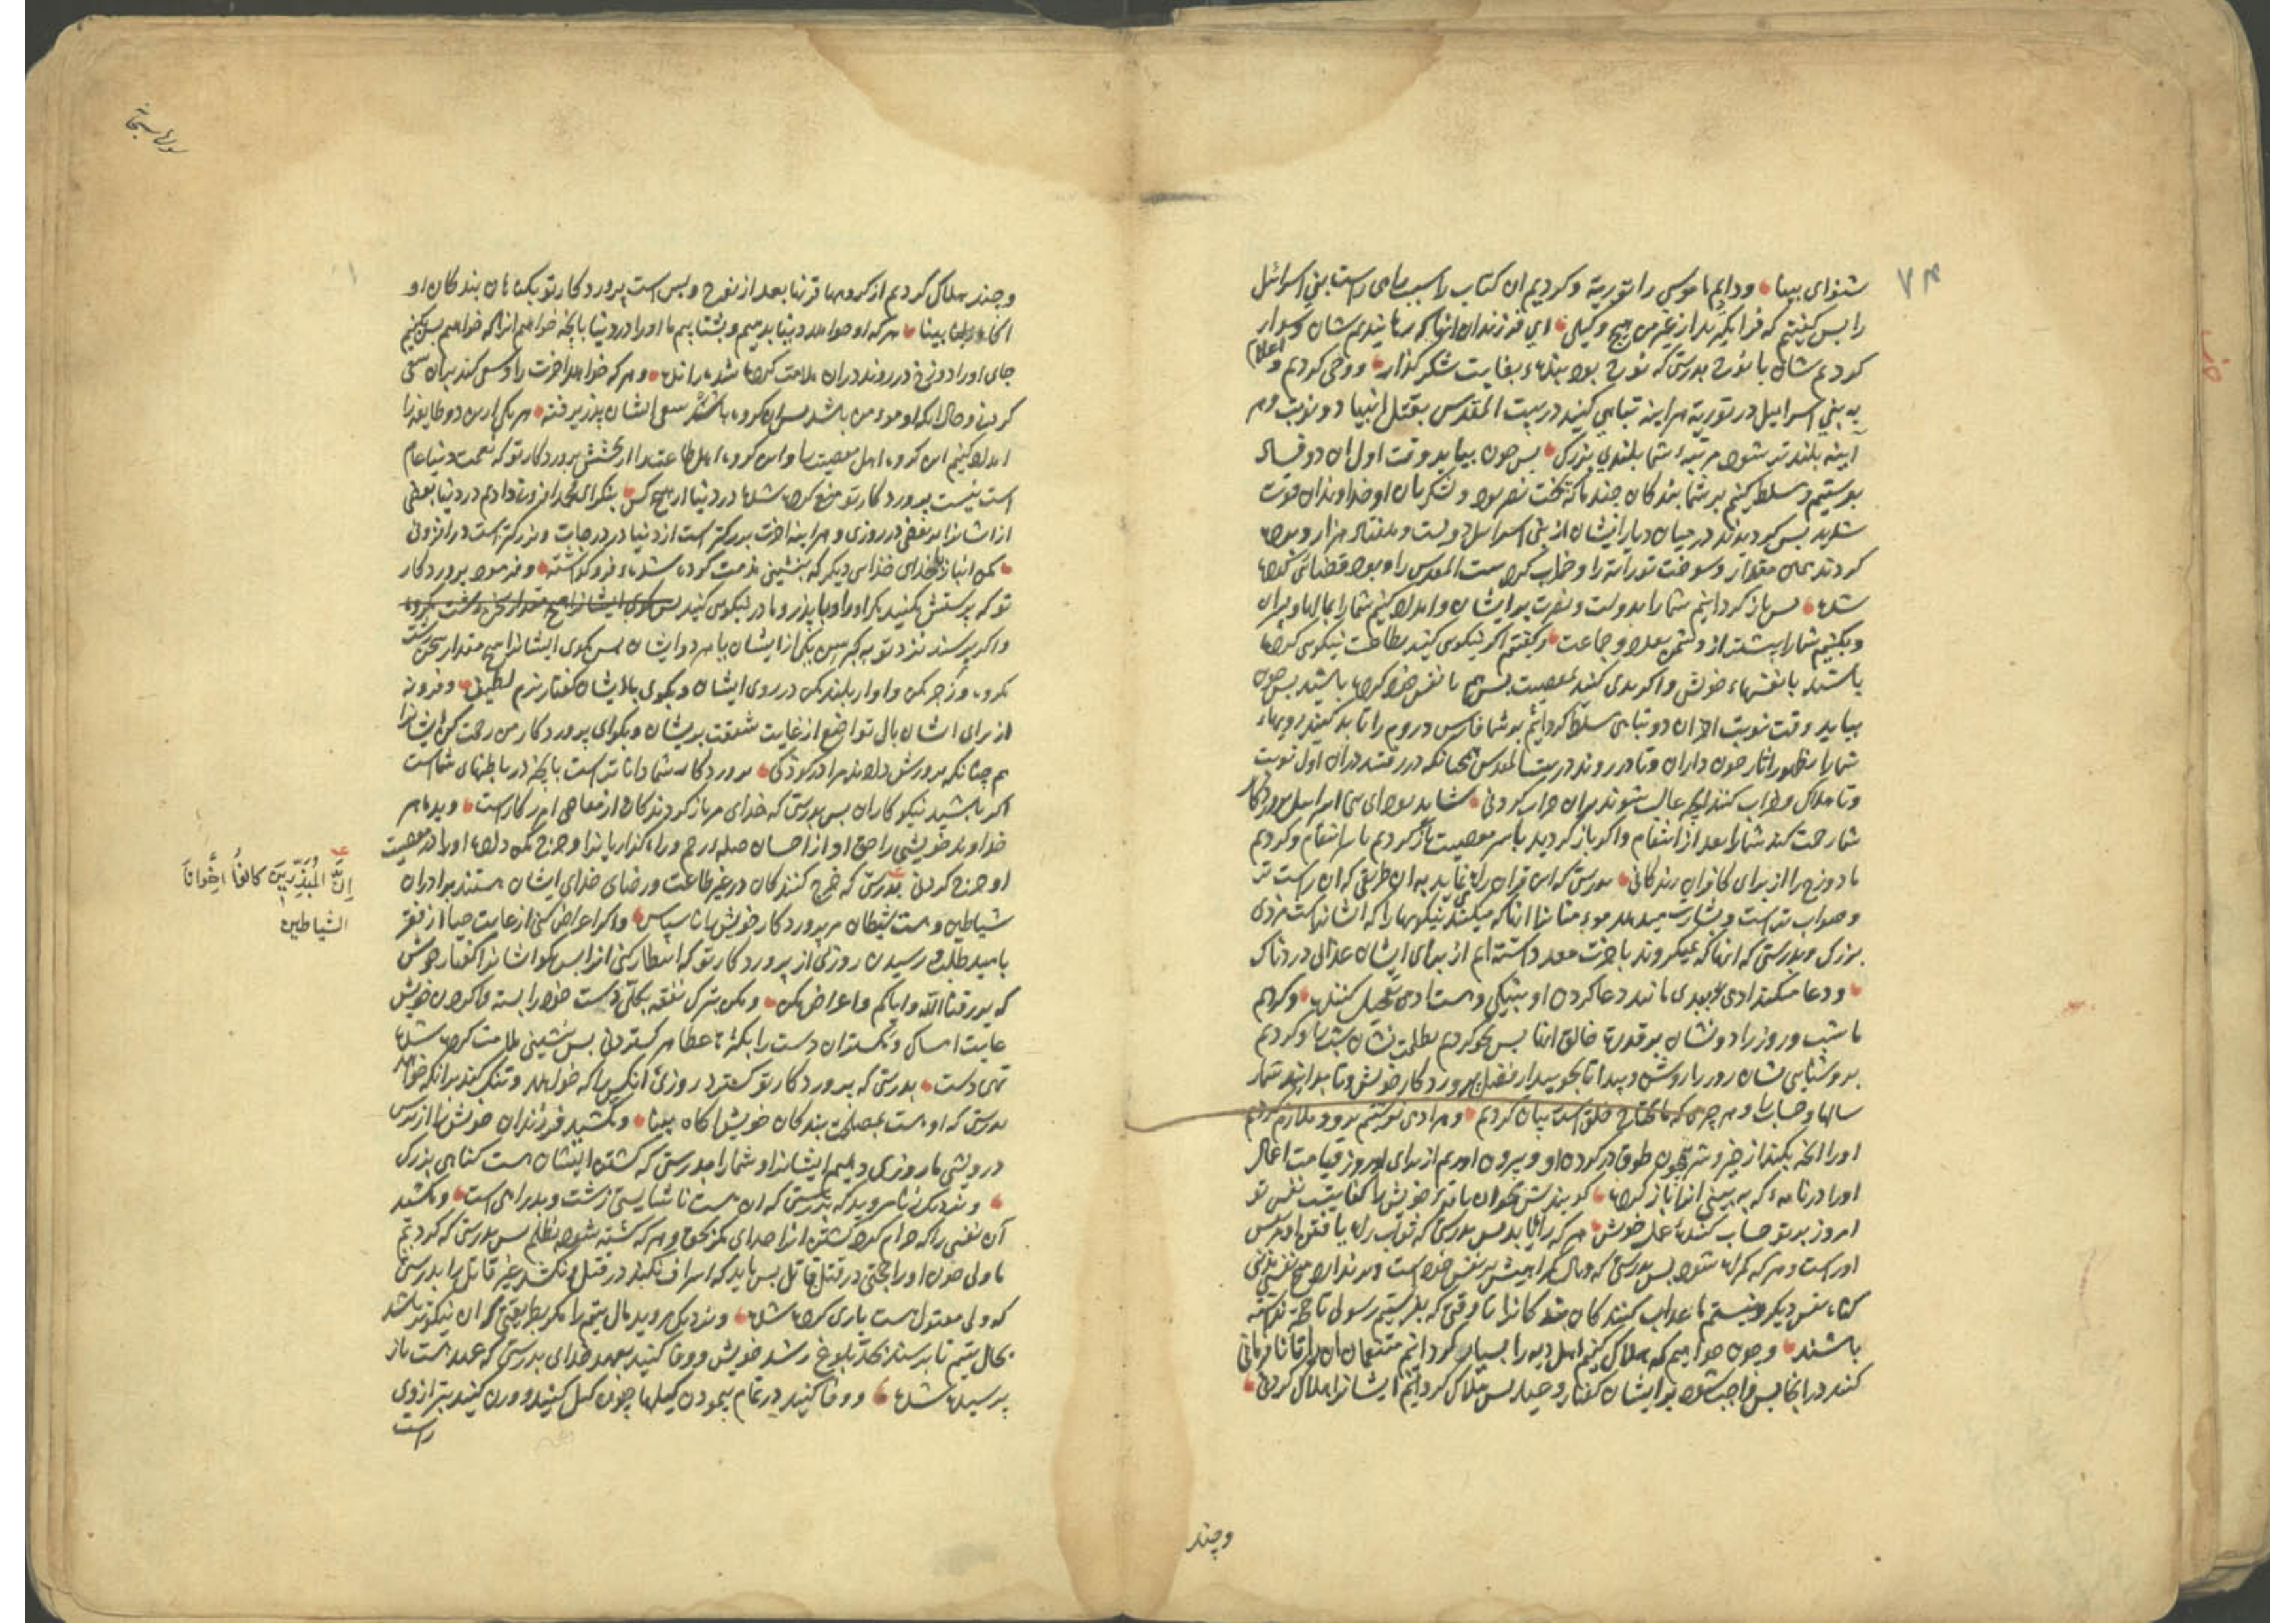 ۷۴
شنوای بینا ودادیم ما موسی را توریة و کردیم ان کتاب را سبب راه راست بنی اسرائیل
را پس گفتیم که فرا مگیرید از غیر من هیچ وکیلی ای فرزندان انها که رسانیدیم شان و سوار
کردیم شان با نوح بدرستی که نوح بود بنده بغایت شکر گذار ووحی کردیم و
اعلام
به بنی اسرائیل در توریة هراینه تباهی کنید در بیت المقدس بقتل انبیا دو نوبت وهر
آینه بلند تر شود مرتبه شما بلندی بزرگ پس چون بیاید وقت اول ان دو فساد
بفرستیم و مسلط کنیم بر شما بندگان چند ما که بخت نصر بود و لشکریان او خداوندان قوت
شدید پس کردیدند در میان دیار ایشان از بنی اسرائیل دویست و هفتاد هزار و برده
کردند همان مقدار و سوخت توراة را و خراب کرد بیت المقدس را و بود قضائی کرده
شده پس باز کردانیم شما را بدولت و نصرت بر ایشان و امداد کنیم شما را بمال و پسران
و بکنیم شما را بیشتر از دشمن بعدد و جماعت و گفتیم اگر نیکوی کنید بطاعت نیکوی کرده
باشید با نفسهاء خویش و اگر بدی کنید بمعصیت پس هم با نفس خود کرده باشید پس چون
بیاید وقت نوبت اخر ان دو تباهی مسلط کردانیم بر شما فارس و روم را تا بد کنند رویهاء
شما را بظهور اثار حزن دران و تا در روند در بیت المقدس همچنانکه در رفتند دران اول نوبت
و تا هلاک و خراب کنند انچه غالب شوند بران خراب کردنی شاید بود ای بنی اسرائیل پروردکار
شما رحمت کند شما را بعد از انتقام و اگر باز کردید با سر معصیت باز کردیم با سر انتقام و کردیم
ما دوزخ را از برای کافران زندانی بدرستی که این قران راه می نماید به ان طریقی که ان راست تر
و صواب تر است و بشارت میدهد مومنانرا انانکه میکنند نیکیها را که ایشانراست مزدی
بزرک و بدرستی که انانکه نمیکروند باخرت معد داشته ایم از برای ایشان عذابی دردناک
و دعا میکند ادمی ببدی مانند دعا کردن او بنیکی و هست ادمی تعجیل کننده و کردیم
ما شب و روز را دو نشان بر قدرت خالق انها پس محو کردیم بظلمت نشان شب را و کردیم
بروشنایی نشان روز را روشن و پیدا تا بجویید از فضل پروردکار خویش و تا بدانید شمار
سالها و حساب را و هر چیزی که ما یحتاج خلق است بیان کردیم و هر ادمی نوشتیم برو و ملازم کردیم
او را انچه بکند از خیر و شر همچون طوق در گردن او و بیرون اوریم از برای او روز قیامت اعمال
او را در نامه که به بینی انرا باز کرده کویند بخوان نامه خویش را کفایتست نفس تو
امروز بر تو حساب کننده عمل خویش هر که راه یابد پس بدرستی که ثواب راه یافتن او بر نفس
اوراست و هر که گمراه شود پس بدرستی که وبال گمراهیش بر نفس خود است و بر ندارد هیچ نفسی
گناه نفس دیگر و نیستیم ما عذاب کنندگان بندگانرا تا وقتی که بفرستیم رسولی تا حجة نداشته
باشند و چون خواهیم که هلاک کنیم اهل دیه را بسیار کردانیم متنعمان ان را تا نافرمانی
کنند در انجا پس واجب شود بر ایشان گفتار وعید پس هلاک کردانیم ایشانرا هلاک کردنی
وچند
سورة سبحان
و چند هلاک کردیم از کروهها قرنها بعد از نوح و بس است پرورد کار تو بکناهان بندکان او
اکاه بینا هر که او خواهد دنیا بدهیم و بشتابیم ما او را در دنیا بانچه خواهیم انرا که خواهیم پس کنیم
جای او را دوزخ در روند دران ملامت کرده شده رانده و هر که خواهد اخرت را و سعی کند بران سعی
کردنی و حال انکه او مومن باشد پس ان کروه باشد سعی ایشان پذیرفته هر یکی ازین دو طایفه را
امداد کنیم این کروه اهل معصیت را و این کروه اهل طاعت را از بخشش پروردکار تو که نعمت دنیا عام
است نیست پروردکار تو منع کرده شده در دنیا از هیچ کس بنکر ای محمد افزونی دادیم در دنیا بعضی
از ایشانرا بر بعضی در روزی و هراینه اخرت بزرکتر است از دنیا در درجات و بزرکتر است در افزونی
مکن انباز بخدای خدای دیگر که بنشینی مذمت کرده شده فرو گذاشته و فرمود پروردکار
تو که پرستش مکنید مکر او را و با پدر و مادر نیکوی کنید پس مکوی ایشانرا هیچ مقدار سخن زشت مکروه
و اگر برسند نزد تو به کبر سن یکی از ایشان یا هر دو ایشان پس مکوی ایشانرا هیچ مقدار سخن زشت
مکروه و زجر مکن و اواز بلند مکن در روی ایشان و بکوی با ایشان گفتار نرم لطیف و فرو نه
از برای ایشان بال تواضع از غایت شفقت بریشان و بکو ای پروردکار من رحمت کن ایشانرا
هم چنانکه پرورش دادند مرا در کودکی پروردکار شما دانا تر است بانچه در باطنهای شماست
اگر باشید نیکو کاران پس بدرستی که خدای مر باز کردندکانرا از معاصی امرزکارست و بده مر
خداوند خویشی را حق او از احسان صله رحم و راه گذار یانرا و خرج مکن داده او را در معصیت
او خرج کردنی بدرستی که خرج کنندکان در غیر طاعت و رضای خدای ایشان هستند برادران
شیاطین و هست شیطان مر پروردکار خویش را ناسپاس و اگر اعراض کنی از غایت حیا از فقر
بامید طلب رسیدن روزی از پروردکار تو که انتظار کنی انرا پس بکو ایشانرا گفتار خوش
که یرزقنا الله وایاکم و اعراض مکن و مکن بترک نفقه بکلی دست خود را بسته و با کردن خویش
غایت امساک و مکستران دست را بکثرة عطا هر کستردنی پس بنشینی ملامت کرده شده
تهی دست بدرستی که پروردکار تو کسترد روزی انکس را که خواهد و تنک کند بر انکه خواهد
بدرستی که او هست بمصلحت بندکان خویش اکاه بینا و مکشید فرزندان خویش را از ترس
درویشی ما روزی دهیم ایشانرا و شما را بدرستی که کشتن ایشان هست کناهی بزرک
و نزدیک زنا مروید که بدرستی که ان هست ناشایستی زشت و بد راهی است و مکشید
آن نفسی را که حرام کرد کشتن انرا خدای مکر بحق و هر که کشته شود بظلم پس بدرستی که کردیم
ما ولی خون او را حجتی در قتل قاتل پس باید که اسراف نکند در قتل و نکشد غیر قاتل را بدرستی
که ولی مقتول هست یاری کرده شده و نزدیک مروید مال یتیم را مکر بطریقتی که ان نیکوتر باشد
بحال یتیم تا برسند بحد بلوغ رشد خویش و وفا کنید بعهد خدای بدرستی که عهد هست باز
پرسیده شده و وفا کنید در تمام پیمودن کیلها چون کیل کنید و وزن کنید بترازوی
راست
اِنَّ الْمُبَذِّرِینَ کانُوا اِخْوانَ
الشیاطین